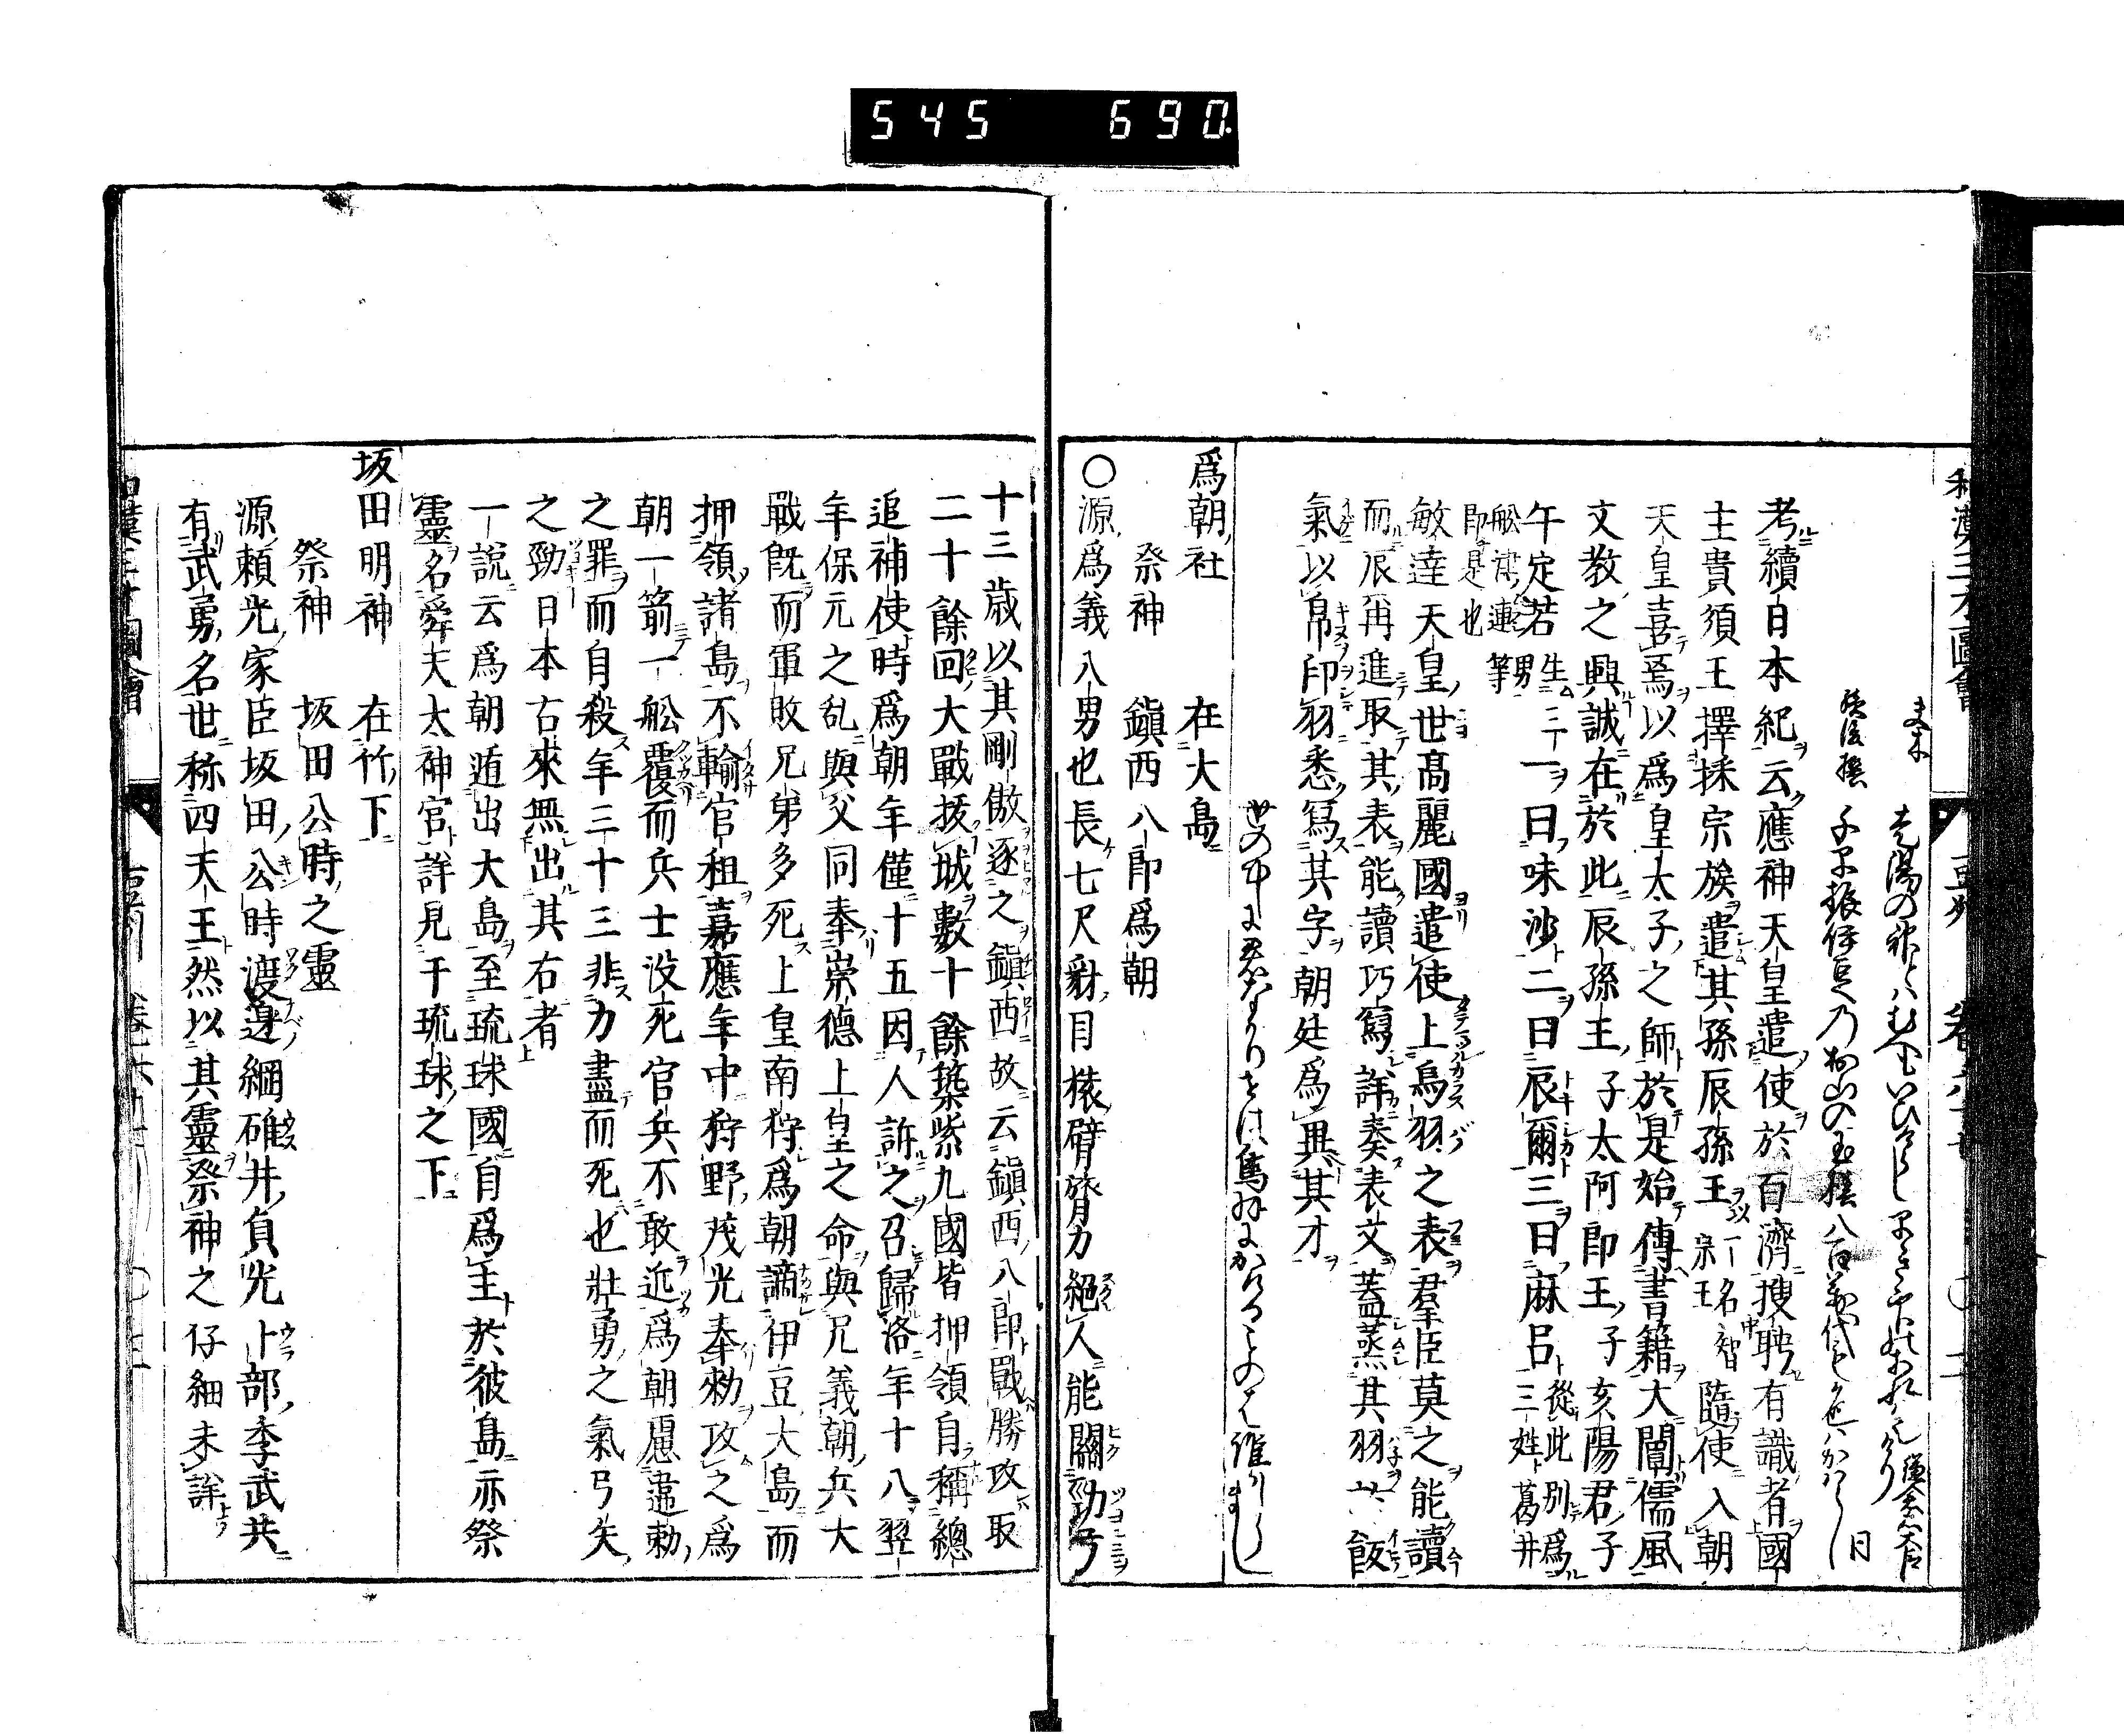 545 690
和漢三才圖會
考續日本紀云應神天皇遣使於百濟搜聘有識者國
主貴須王擇採宗族遣其孫辰孫王隨使入朝
天皇喜焉以爲皇太子之師於是始傳書籍大闡儒風
文教之興誠在於此辰孫王子太阿郎王子亥陽君子
午定若生三男一曰味沙二曰辰爾三曰麻呂從此別爲三姓葛井
船津連等即是也
敏達天皇世髙麗國遣使上烏羽之表羣臣莫之能讀
而辰再進取其表能讀巧寫詳奏表文蓋蒸其羽於飯
氣以帛印羽悉寫其字朝廷爲異其才
爲朝社 在大島
祭神 鎭西八郎爲朝
〇源爲義八男也長七尺豺目猿臂膂力絕人能關勁弓
十三歳以其剛傲逐之鎭西故云鎭西八郎戰勝攻取
二十餘回大戰拔城數十餘築紫九國皆押領自稱總
追補使時爲朝年僅十五因人訴之召歸洛年十八翌
年保元之乱與父同奉崇德上皇之命與兄義朝兵大
戰既而軍敗兄弟多死上皇南狩爲朝謫伊豆大島而
押領諸島不輸官租嘉應年中狩野茂光奉勅攻之爲
朝一箭一舩覆而兵士没死官兵不敢近爲朝慮違勅
之罪而自殺年三十三非力盡而死也壯勇之氣弓矢
之勁日本古來無出其右者
一說云爲朝遁出大島至琉球國自爲主於彼島亦祭
靈名舜天太神宮詳見于琉球之下
坂田明神 在竹下
祭神 坂田公時之靈
源頼光家臣坂田公時渡邊綱碓井負光卜部季武共
有武勇名世称四天王然以其靈祭神之仔細未詳